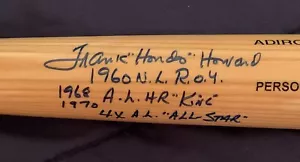 ADIRO
Frank "Hondo" Howard
PERSO
1960 N.L. R.O.Y.
1968 A.L. HR "KING"
1970
4X A.L. "ALL STAR"